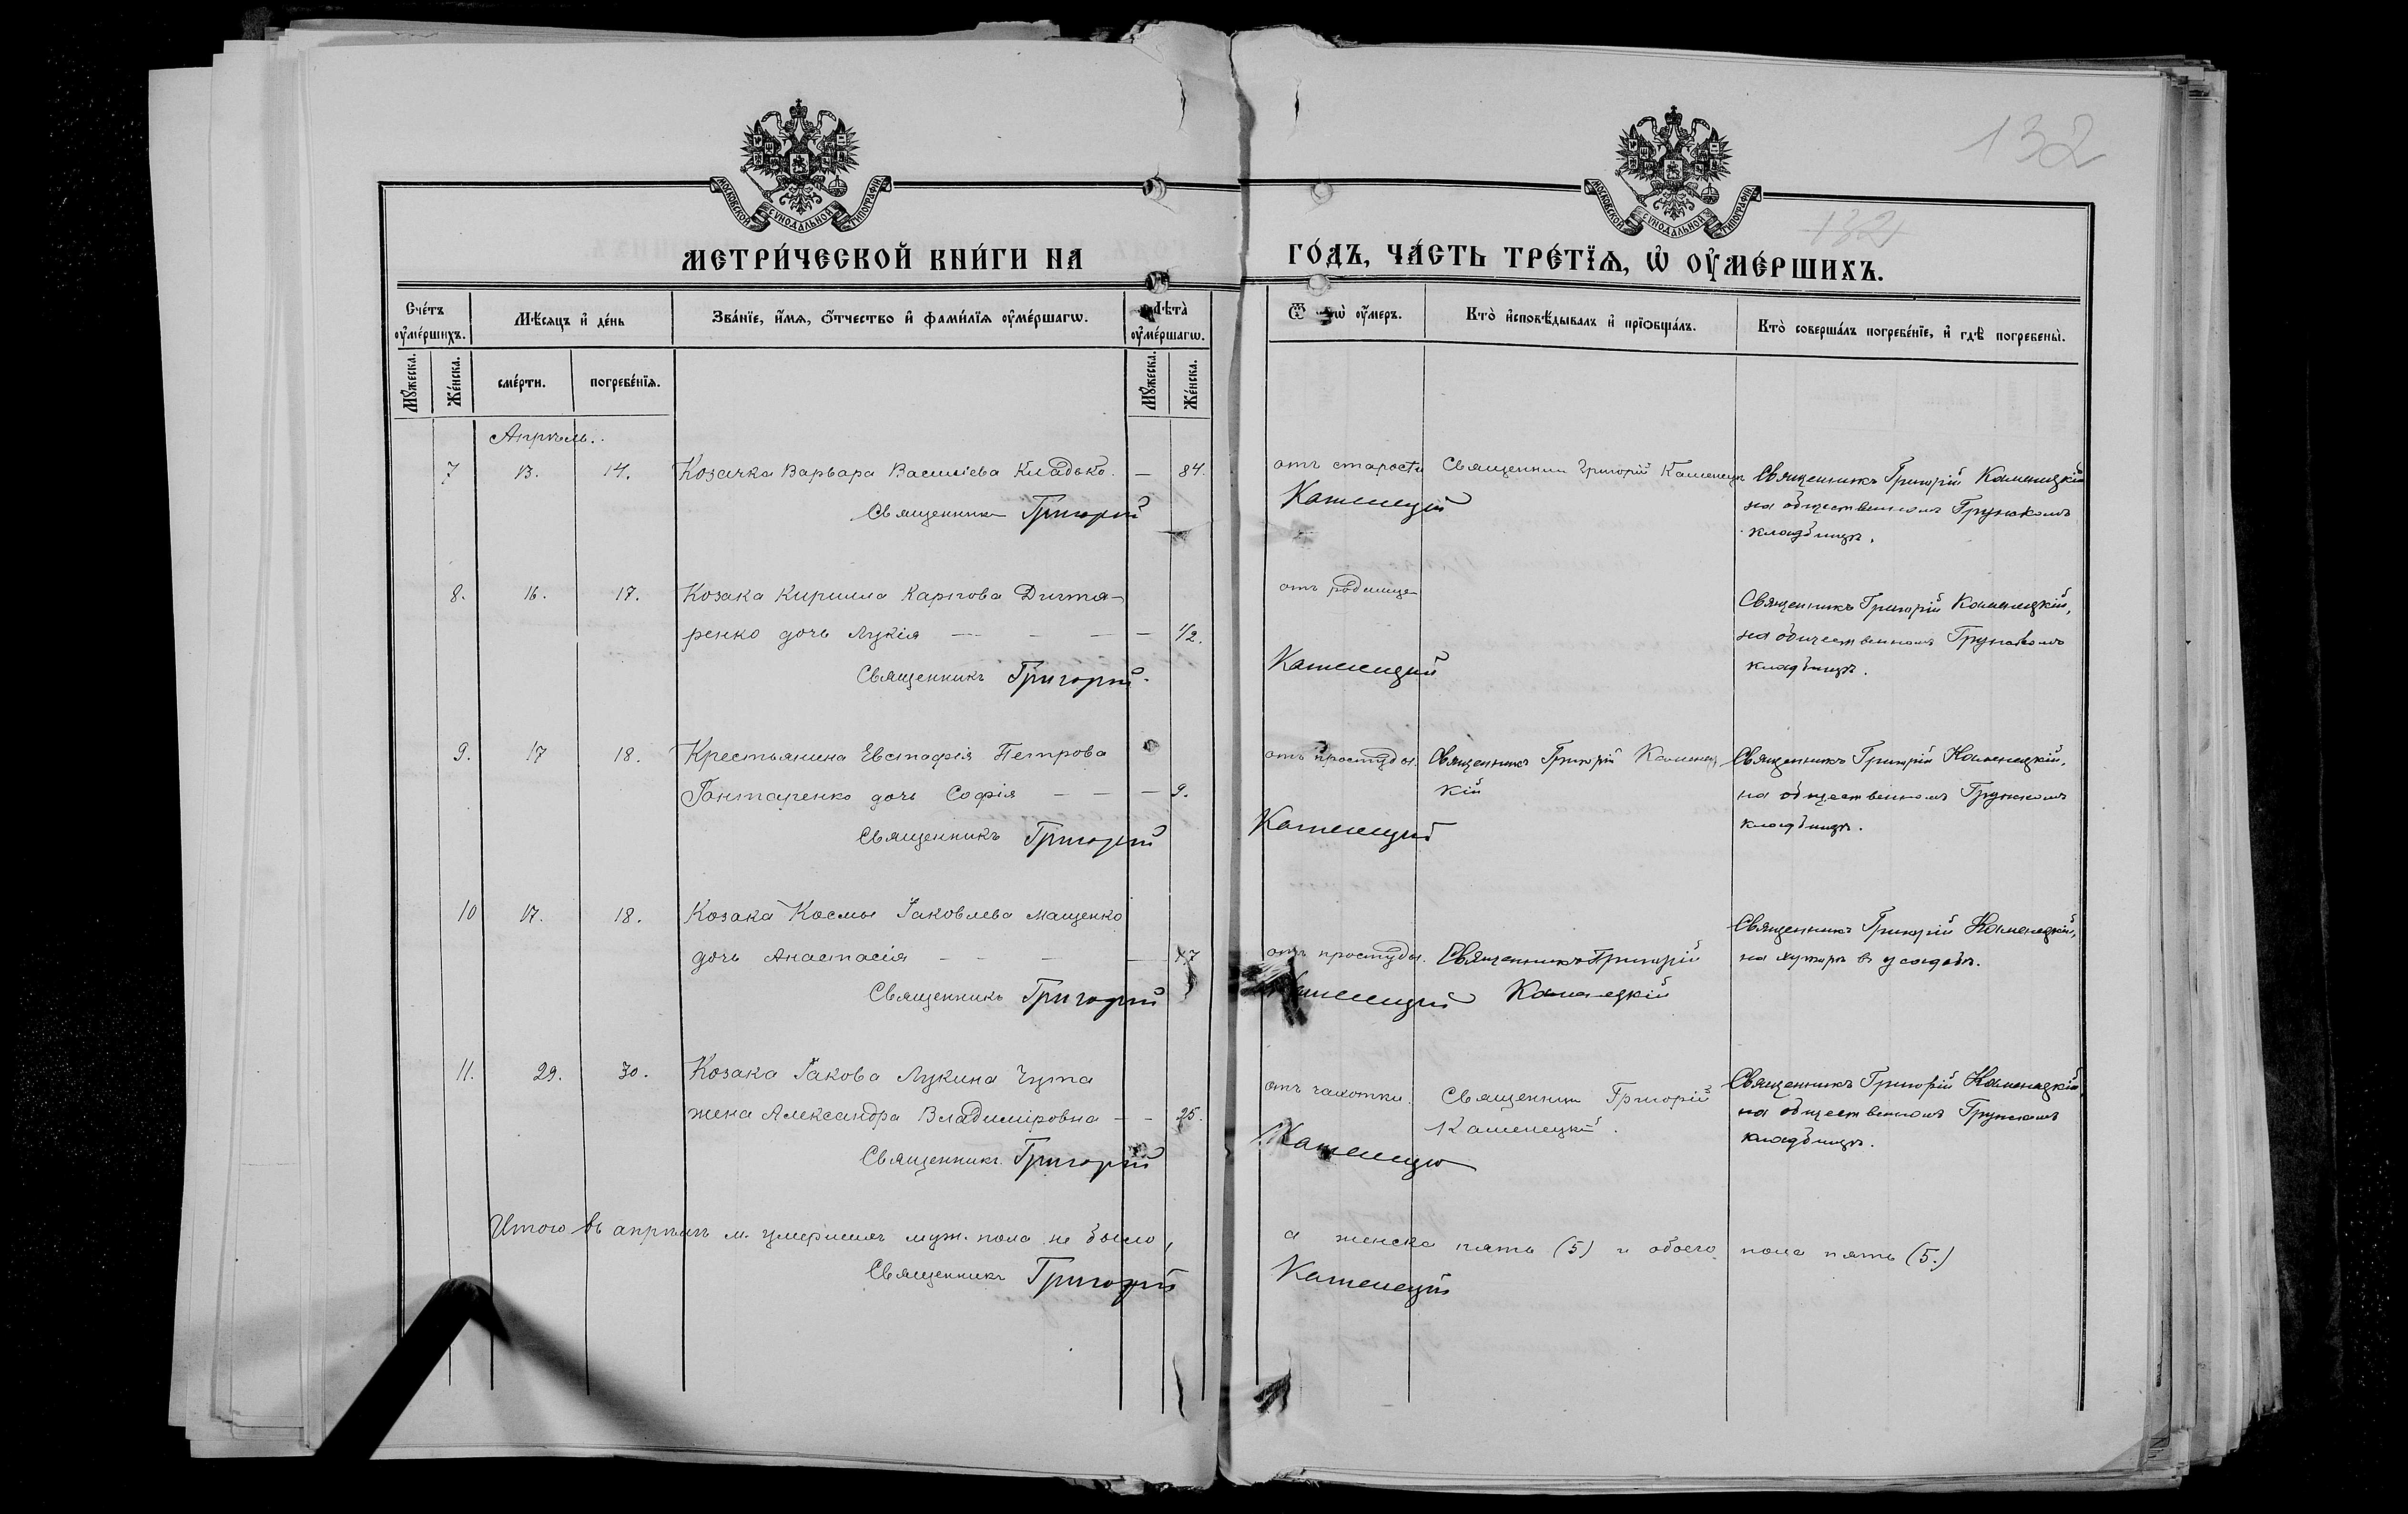 132
132
МОСКОВСКОЙ СѴНОДАЛЬНОЙ ТИПОГРАФІИ
МОСКОВСКОЙ СѴНОДАЛЬНОЙ ТИПОГРАФІИ
МЕТРИ́ЧЕСКОЙ КНИ́ГИ НА ГО́ДЪ, ЧА́СТЬ ТРЕ́ТЇѦ, Ѡ҆ ОУ҆МЕ́РШИХЪ.
Сче́тъ оу҆ме́ршихъ.
Мꙋжеска.
Же́нска.
Мѣ́сяцъ и҆ де́нь
сме́рти.
погребе́нїѧ.
Зва́нїе, и҆́мѧ, о҆́тчество и҆ фами́лїѧ оу҆ме́ршагѡ.
Лѣта̀ оу҆ме́ршагѡ.
Мꙋжеска.
Же́нска.
оу҆́меръ.
Кто̀ и҆сповѣ́дывалъ и҆ прїѡбща́лъ.
Кто̀ соверша́лъ погребе́нїе, и҆ гдѣ̀ погребены̀.
Апрѣль.
7 13. 14. Козачка Варвара Василіева Кладько. — 84. отъ старости Священник Григорій Каменецк Священникъ Григорій Каменецкій
Священник Григорій Каменецкій на общественномъ Грунскомъ
кладбищѣ.
8. 16. 17. Козака Кирилла Карпова Дигтя- отъ родимца Священникъ Григорій Каменецкій,
ренко дочь Лукія — — — — 1/2. на общественномъ Грунскомъ
Священникъ Григорій Каменецкій кладбищѣ.
9. 17 18. Крестьянина Евстафія Петрова отъ простуды. Священникъ Григорій Каменец Священникъ Григорій Каменецкій,
Гонтаренко дочь Софія — — — 9. кій на общественномъ Грунскомъ
Священникъ Григорій Каменецкій кладбищѣ.
10 17. 18. Козака Космы Іаковлева Мащенко Священникъ Григорій Каменецкій,
дочь Анастасія — — — — отъ простуды. Священникъ Григорій на хуторѣ въ усадьбѣ.
Священникъ Григорій Каменецкій Каменецкій
11. 29. 30. Козака Іакова Лукина Чупа отъ чахотки. Священник Григорій Священникъ Григорій Каменецкій
жена Александра Владиміровна — — 25. Каменецкій. на общественномъ Грунскомъ
Священникъ Григорій Каменецкій кладбищѣ.
Итого въ апрѣлѣ м. умершихъ муж. пола не было, а женска пять (5) и обоего пола пять (5.)
Священникъ Григорій Каменецкій